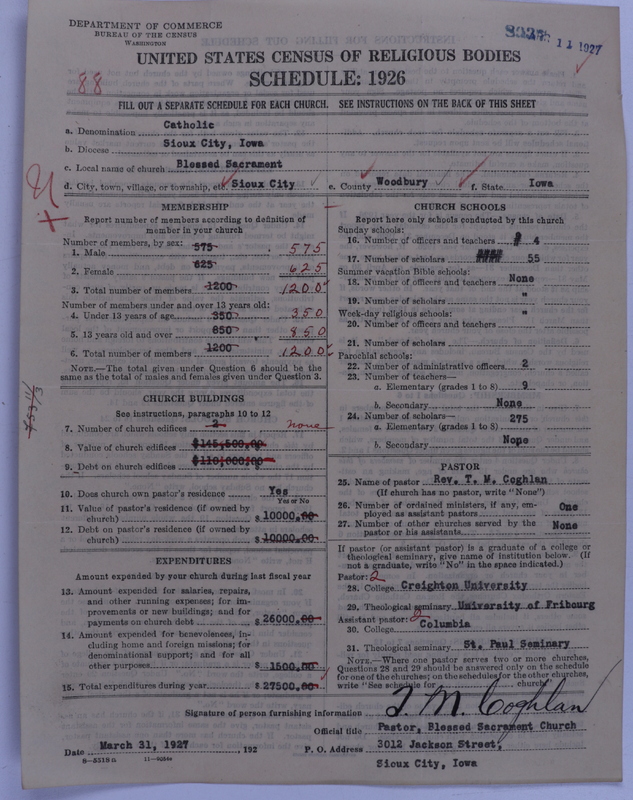 DEPARTMENT OF COMMERCE
BUREAU OF THE CENSUS
WASHINGTON
11 1927
UNITED STATES CENSUS OF RELIGIOUS BODIES
SCHEDULE: 1926
88
FILL OUT A SEPARATE SCHEDULE FOR EACH CHURCH. SEE INSTRUCTIONS ON THE BACK OF THIS SHEET
a. Denomination Catholic
b. Diocese Sioux City, Iowa
c. Local name of church Blessed Sacrament
d. City, town, village, or township, etc. Sioux City e. County Woodbury f. State Iowa
MEMBERSHIP
Report number of members according to definition of
member in your church
Number of members, by sex:
1. Male 575 575
2. Female 625 625
3. Total number of members 1200 1200
Number of members under and over 13 years old:
4. Under 13 years of age 350 350
5. 13 years old and over 850 850
6. Total number of members 1200 1200
NOTE.—The total given under Question 6 should be the
same as the total of males and females given under Question 3.
CHURCH BUILDINGS
See instructions, paragraphs 10 to 12
7. Number of church edifices 2 none
8. Value of church edifices $145,500.00
9. Debt on church edifices $110,000.00
10. Does church own pastor's residence Yes
Yes or No
11. Value of pastor's residence (if owned by
church) $10000.00
12. Debt on pastor's residence (if owned by
church) $10000.00
EXPENDITURES
Amount expended by your church during last fiscal year
13. Amount expended for salaries, repairs,
and other running expenses; for im-
provements or new buildings; and for
payments on church debt $26000.00
14. Amount expended for benevolences, in-
cluding home and foreign missions; for
denominational support; and for all
other purposes $1500.00
15. Total expenditures during year $27500.00
CHURCH SCHOOLS
Report here only schools conducted by this church
Sunday schools:
16. Number of officers and teachers 4
17. Number of scholars 55
Summer vacation Bible schools:
18. Number of officers and teachers None
19. Number of scholars "
Week-day religious schools:
20. Number of officers and teachers "
21. Number of scholars
Parochial schools:
22. Number of administrative officers 2
23. Number of teachers—
a. Elementary (grades 1 to 8) 9
b. Secondary None
24. Number of scholars—
a. Elementary (grades 1 to 8) 275
b. Secondary None
PASTOR
25. Name of pastor Rev. T. M. Coghlan
(If church has no pastor, write "None")
26. Number of ordained ministers, if any, em-
ployed as assistant pastors One
27. Number of other churches served by the
pastor or his assistants None
If pastor (or assistant pastor) is a graduate of a college or
theological seminary, give name of institution below. (If
not a graduate, write "No" in the space indicated.)
Pastor: 2
28. College Creighton University
29. Theological seminary University of Fribourg
Assistant pastor: 2
30. College Columbia
31. Theological seminary St. Paul Seminary
NOTE.—Where one pastor serves two or more churches,
Questions 28 and 29 should be answered only on the schedule
for one of the churches; on the schedules for the other churches,
write "See schedule for church"
Signature of person furnishing information T. M. Coghlan
Official title Pastor, Blessed Sacrament Church
Date March 31, 1927, 192 P. O. Address 3012 Jackson Street,
8—5318a
Sioux City, Iowa